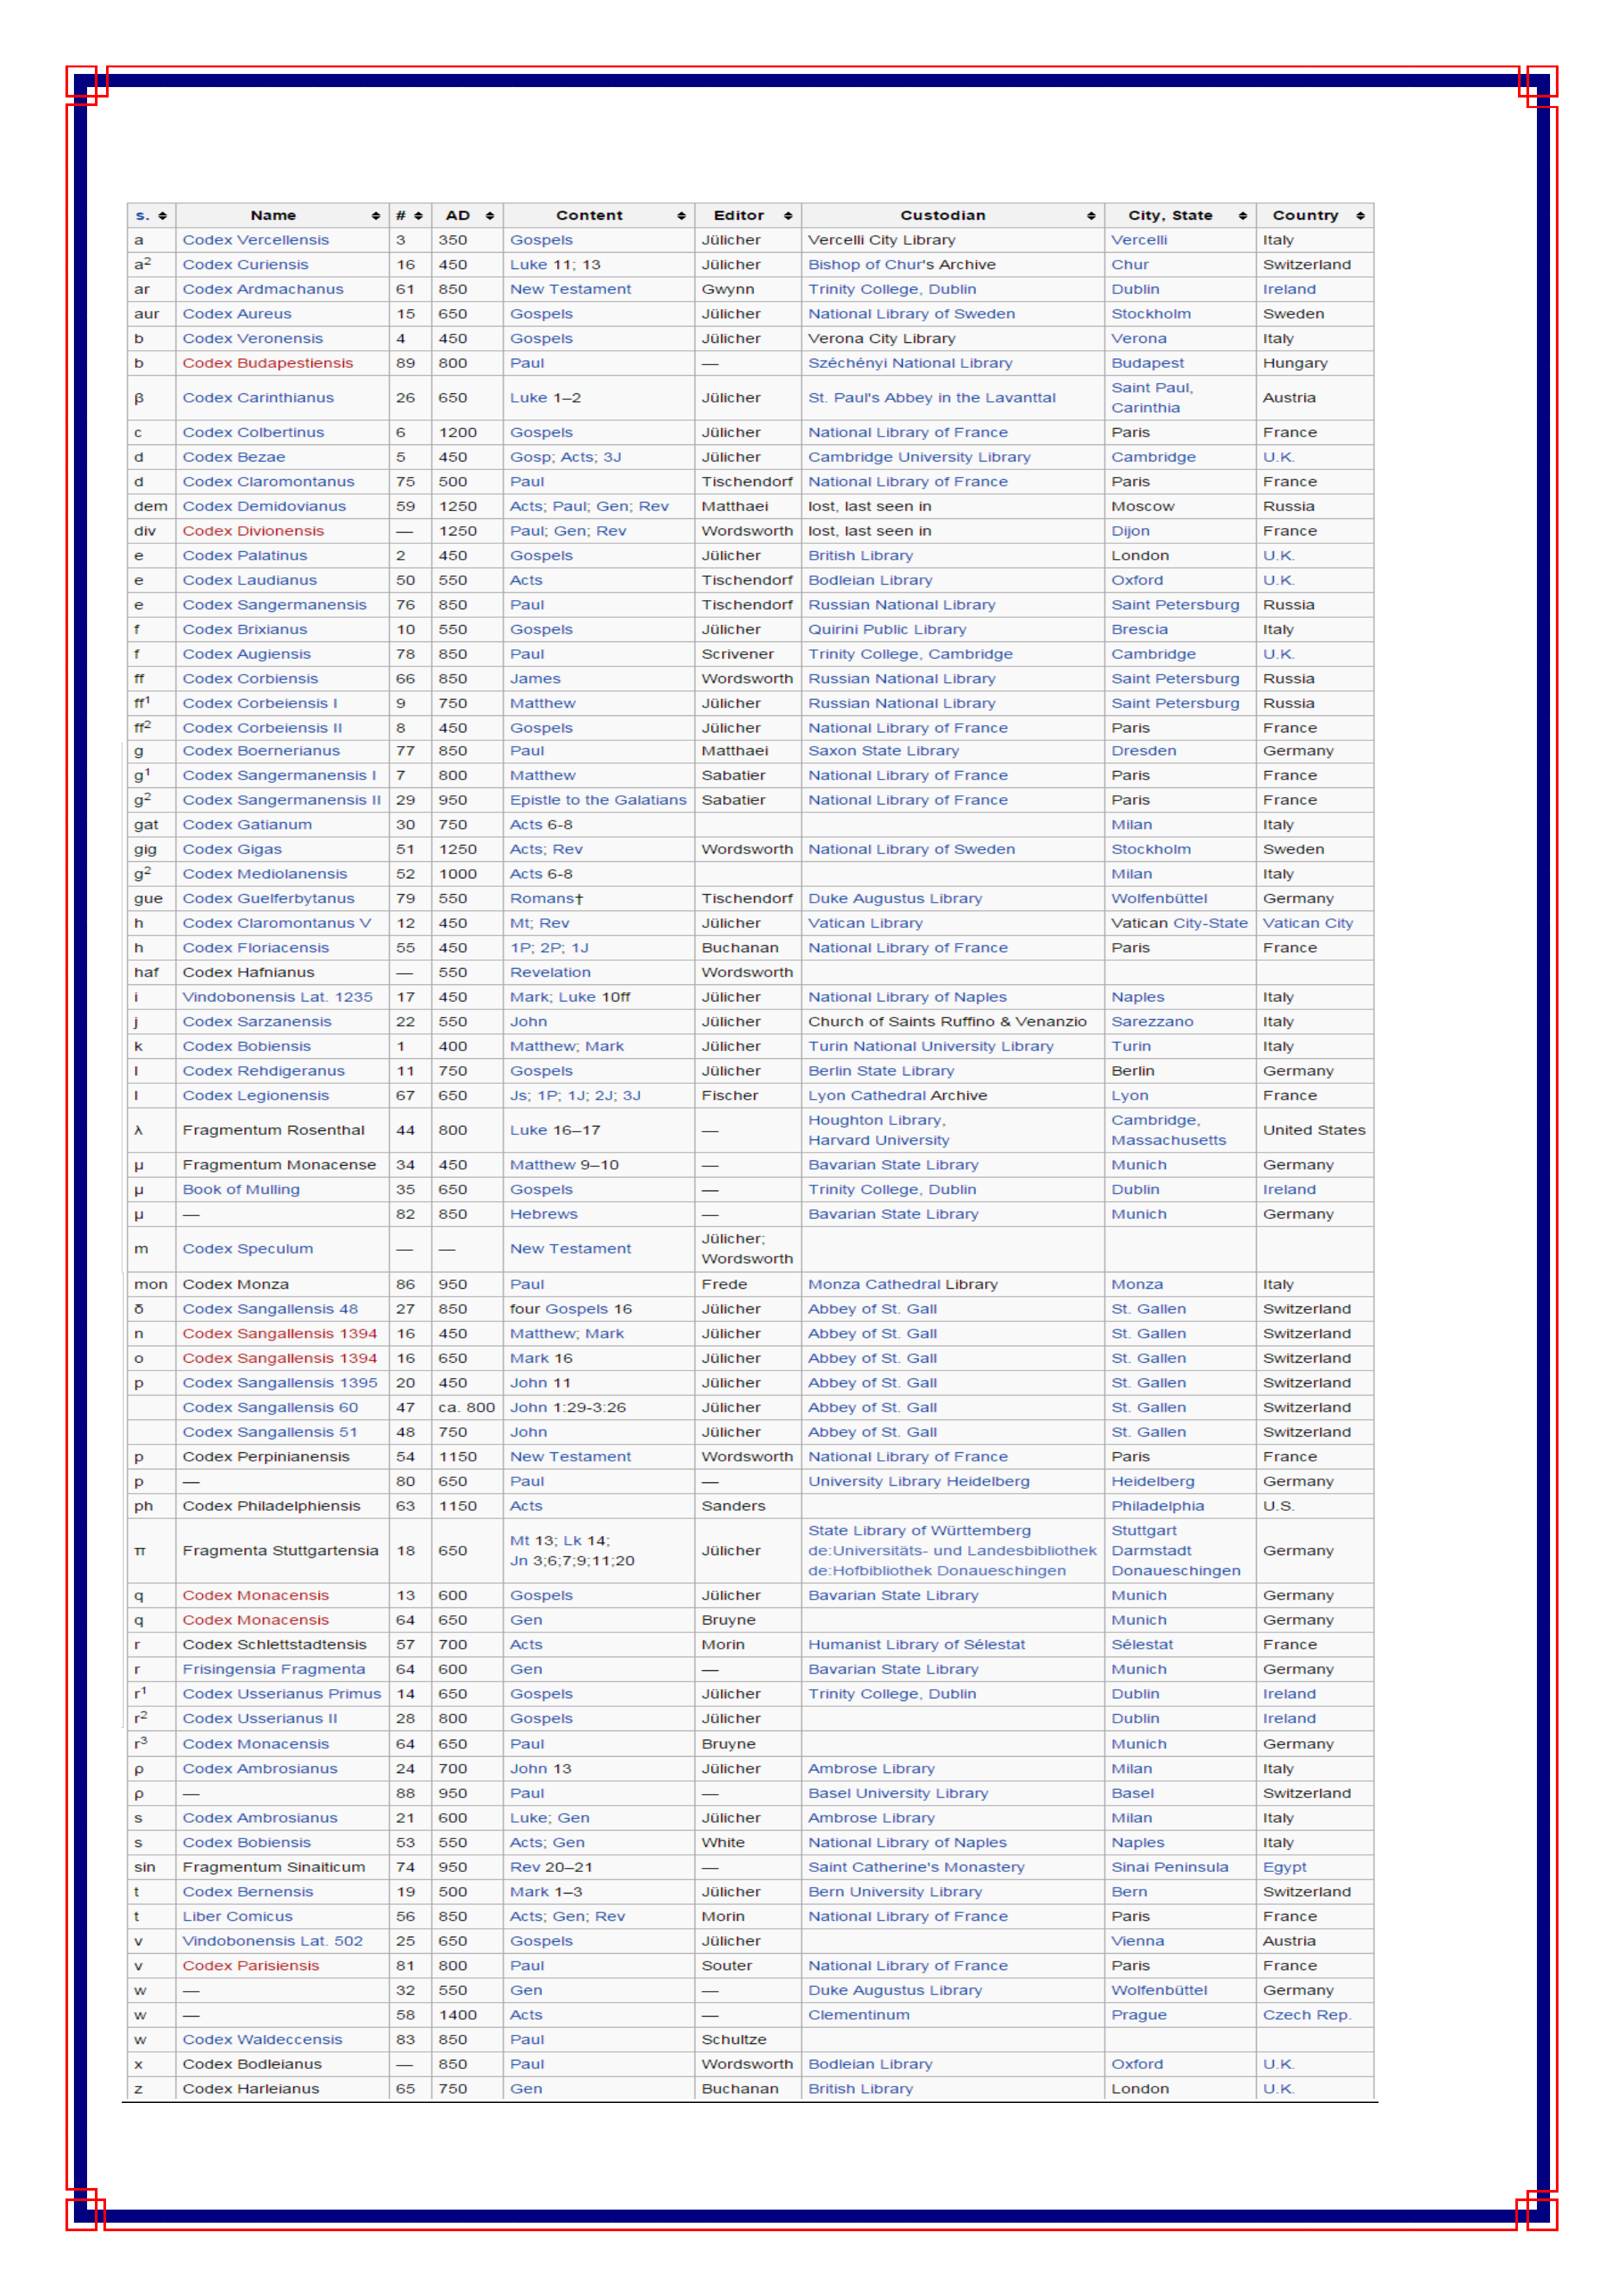 s. Name # AD Content Editor Custodian City, State Country
a Codex Vercellensis 3 350 Gospels Jülicher Vercelli City Library Vercelli Italy
a2 Codex Curiensis 16 450 Luke 11; 13 Jülicher Bishop of Chur's Archive Chur Switzerland
ar Codex Ardmachanus 61 850 New Testament Gwynn Trinity College, Dublin Dublin Ireland
aur Codex Aureus 15 650 Gospels Jülicher National Library of Sweden Stockholm Sweden
b Codex Veronensis 4 450 Gospels Jülicher Verona City Library Verona Italy
b Codex Budapestiensis 89 800 Paul — Széchényi National Library Budapest Hungary
β Codex Carinthianus 26 650 Luke 1–2 Jülicher St. Paul's Abbey in the Lavanttal Saint Paul, Carinthia Austria
c Codex Colbertinus 6 1200 Gospels Jülicher National Library of France Paris France
d Codex Bezae 5 450 Gosp; Acts; 3J Jülicher Cambridge University Library Cambridge U.K.
d Codex Claromontanus 75 500 Paul Tischendorf National Library of France Paris France
dem Codex Demidovianus 59 1250 Acts; Paul; Gen; Rev Matthaei lost, last seen in Moscow Russia
div Codex Divionensis — 1250 Paul; Gen; Rev Wordsworth lost, last seen in Dijon France
e Codex Palatinus 2 450 Gospels Jülicher British Library London U.K.
e Codex Laudianus 50 550 Acts Tischendorf Bodleian Library Oxford U.K.
e Codex Sangermanensis 76 850 Paul Tischendorf Russian National Library Saint Petersburg Russia
f Codex Brixianus 10 550 Gospels Jülicher Quirini Public Library Brescia Italy
f Codex Augiensis 78 850 Paul Scrivener Trinity College, Cambridge Cambridge U.K.
ff Codex Corbiensis 66 850 James Wordsworth Russian National Library Saint Petersburg Russia
ff1 Codex Corbeiensis I 9 750 Matthew Jülicher Russian National Library Saint Petersburg Russia
ff2 Codex Corbeiensis II 8 450 Gospels Jülicher National Library of France Paris France
g Codex Boernerianus 77 850 Paul Matthaei Saxon State Library Dresden Germany
g1 Codex Sangermanensis I 7 800 Matthew Sabatier National Library of France Paris France
g2 Codex Sangermanensis II 29 950 Epistle to the Galatians Sabatier National Library of France Paris France
gat Codex Gatianum 30 750 Acts 6-8 Milan Italy
gig Codex Gigas 51 1250 Acts; Rev Wordsworth National Library of Sweden Stockholm Sweden
g2 Codex Mediolanensis 52 1000 Acts 6-8 Milan Italy
gue Codex Guelferbytanus 79 550 Romans† Tischendorf Duke Augustus Library Wolfenbüttel Germany
h Codex Claromontanus V 12 450 Mt; Rev Jülicher Vatican Library Vatican City-State Vatican City
h Codex Floriacensis 55 450 1P; 2P; 1J Buchanan National Library of France Paris France
haf Codex Hafnianus — 550 Revelation Wordsworth
i Vindobonensis Lat. 1235 17 450 Mark; Luke 10ff Jülicher National Library of Naples Naples Italy
j Codex Sarzanensis 22 550 John Jülicher Church of Saints Ruffino & Venanzio Sarezzano Italy
k Codex Bobiensis 1 400 Matthew; Mark Jülicher Turin National University Library Turin Italy
l Codex Rehdigeranus 11 750 Gospels Jülicher Berlin State Library Berlin Germany
l Codex Legionensis 67 650 Js; 1P; 1J; 2J; 3J Fischer Lyon Cathedral Archive Lyon France
λ Fragmentum Rosenthal 44 800 Luke 16–17 — Houghton Library, Harvard University Cambridge, Massachusetts United States
μ Fragmentum Monacense 34 450 Matthew 9–10 — Bavarian State Library Munich Germany
μ Book of Mulling 35 650 Gospels — Trinity College, Dublin Dublin Ireland
μ — 82 850 Hebrews — Bavarian State Library Munich Germany
m Codex Speculum — — New Testament Jülicher; Wordsworth
mon Codex Monza 86 950 Paul Frede Monza Cathedral Library Monza Italy
δ Codex Sangallensis 48 27 850 four Gospels 16 Jülicher Abbey of St. Gall St. Gallen Switzerland
n Codex Sangallensis 1394 16 450 Matthew; Mark Jülicher Abbey of St. Gall St. Gallen Switzerland
o Codex Sangallensis 1394 16 650 Mark 16 Jülicher Abbey of St. Gall St. Gallen Switzerland
p Codex Sangallensis 1395 20 450 John 11 Jülicher Abbey of St. Gall St. Gallen Switzerland
Codex Sangallensis 60 47 ca. 800 John 1:29-3:26 Jülicher Abbey of St. Gall St. Gallen Switzerland
Codex Sangallensis 51 48 750 John Jülicher Abbey of St. Gall St. Gallen Switzerland
p Codex Perpinianensis 54 1150 New Testament Wordsworth National Library of France Paris France
p — 80 650 Paul — University Library Heidelberg Heidelberg Germany
ph Codex Philadelphiensis 63 1150 Acts Sanders Philadelphia U.S.
π Fragmenta Stuttgartensia 18 650 Mt 13; Lk 14; Jn 3;6;7;9;11;20 Jülicher State Library of Württemberg de:Universitäts- und Landesbibliothek de:Hofbibliothek Donaueschingen Stuttgart Darmstadt Donaueschingen Germany
q Codex Monacensis 13 600 Gospels Jülicher Bavarian State Library Munich Germany
q Codex Monacensis 64 650 Gen Bruyne Munich Germany
r Codex Schlettstadtensis 57 700 Acts Morin Humanist Library of Sélestat Sélestat France
r Frisingensia Fragmenta 64 600 Gen — Bavarian State Library Munich Germany
r1 Codex Usserianus Primus 14 650 Gospels Jülicher Trinity College, Dublin Dublin Ireland
r2 Codex Usserianus II 28 800 Gospels Jülicher Dublin Ireland
r3 Codex Monacensis 64 650 Paul Bruyne Munich Germany
ρ Codex Ambrosianus 24 700 John 13 Jülicher Ambrose Library Milan Italy
ρ — 88 950 Paul — Basel University Library Basel Switzerland
s Codex Ambrosianus 21 600 Luke; Gen Jülicher Ambrose Library Milan Italy
s Codex Bobiensis 53 550 Acts; Gen White National Library of Naples Naples Italy
sin Fragmentum Sinaiticum 74 950 Rev 20–21 — Saint Catherine's Monastery Sinai Peninsula Egypt
t Codex Bernensis 19 500 Mark 1–3 Jülicher Bern University Library Bern Switzerland
t Liber Comicus 56 850 Acts; Gen; Rev Morin National Library of France Paris France
v Vindobonensis Lat. 502 25 650 Gospels Jülicher Vienna Austria
v Codex Parisiensis 81 800 Paul Souter National Library of France Paris France
w — 32 550 Gen — Duke Augustus Library Wolfenbüttel Germany
w — 58 1400 Acts — Clementinum Prague Czech Rep.
w Codex Waldeccensis 83 850 Paul Schultze
x Codex Bodleianus — 850 Paul Wordsworth Bodleian Library Oxford U.K.
z Codex Harleianus 65 750 Gen Buchanan British Library London U.K.